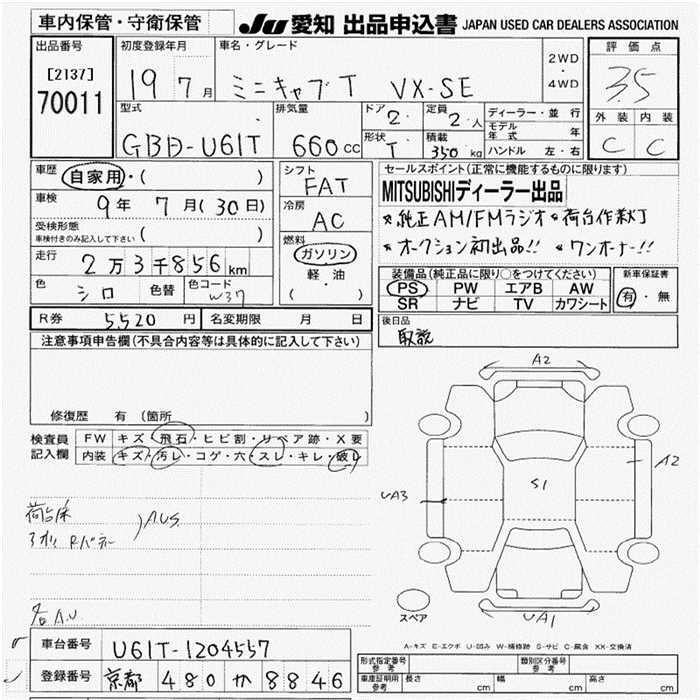 車内保管・守衛保管
JU 愛知 出品申込書 JAPAN USED CAR DEALERS ASSOCIATION
出品番号
[2137]
70011
初度登録年月
19 7 月
車名・グレード
ミニキャブT VX-SE
2WD
・
4WD
評価点
3.5
外装 内装
C C
型式
GBD-U61T
排気量
660 cc
ドア 2
形状 T
定員 2 人
積載 350 kg
ディーラー・並行
モデル年式 年
ハンドル 左・右
車歴 自家用・( )
車検 9 年 7 月(30日)
受検形態
車検付きのみ記入して下さい ( )
走行 2万3千856 km
色 シロ 色替 色コード W37
シフト
FAT
冷房
AC
燃料
ガソリン
軽・油
( )
セールスポイント(正常に機能するものに限ります)
MITSUBISHIディーラー出品
純正AM/FMラジオ 荷台作業灯
オークション初出品!! ワンオーナー!!
装備品(純正品に限り○をつけてください) 新車保証書
PS PW エアB AW
SR ナビ TV カワシート
有・無
R券 5,520 円 名変期限 月 日
後日品
取説
注意事項申告欄(不具合内容等は具体的に記入して下さい)
修復歴 有(箇所 )
検査員 FW キズ・飛石・ヒビ割・リペア跡・X要
記入欄 内装 キズ・汚レ・コゲ・穴・スレ・キレ・破レ
荷台床
3方 Rバンパー
A.U.S.
各A.U
A2
A2
UA3
S1
UA1
スペア
A-キズ E-エクボ U-凹み W-補修跡 S-サビ C-腐食 XX-交換済
車台番号 U61T-1204557
登録番号 京都 480 か 8846
形式指定番号 参考
類別区分番号 参考
車庫証明用 参考 長さ cm 幅 cm 高さ cm